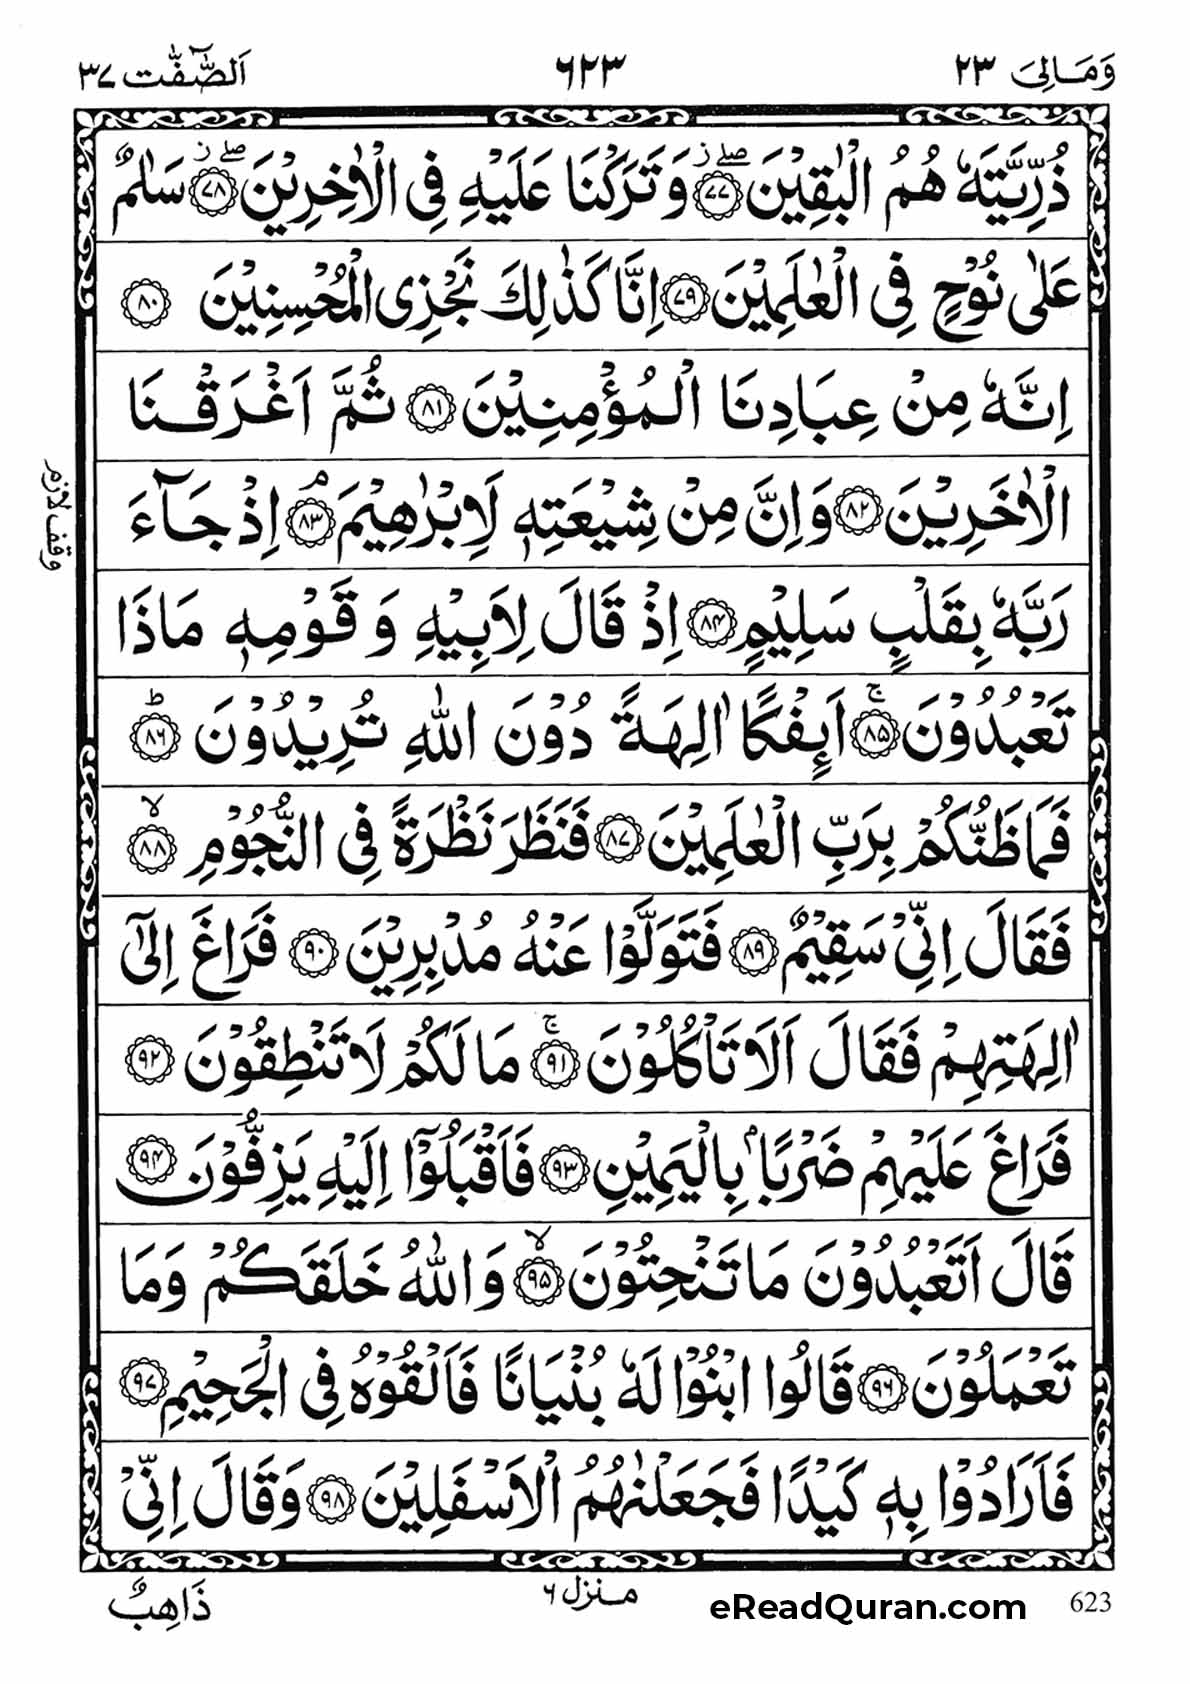 وَمَالِیَ ٢٣ ٦٢٣ اَلصّٰٓفّٰت ٣٧
ذُرِّیَّتَهٗ هُمُ الْبٰقِیْنَ ﴿٧٧﴾ صلے ز وَ تَرَكْنَا عَلَیْهِ فِی الْاٰخِرِیْنَ ﴿٧٨﴾ صلے ز سَلٰمٌ
عَلٰی نُوْحٍ فِی الْعٰلَمِیْنَ ﴿٧٩﴾ اِنَّا كَذٰلِكَ نَجْزِی الْمُحْسِنِیْنَ ﴿٨٠﴾
اِنَّهٗ مِنْ عِبَادِنَا الْمُؤْمِنِیْنَ ﴿٨١﴾ ثُمَّ اَغْرَقْنَا
الْاٰخَرِیْنَ ﴿٨٢﴾ وَاِنَّ مِنْ شِیْعَتِهٖ لَاِبْرٰهِیْمَ ﴿٨٣﴾ۘ اِذْ جَآءَ
وقف لازم
رَبَّهٗ بِقَلْبٍ سَلِیْمٍ ﴿٨٤﴾ اِذْ قَالَ لِاَبِیْهِ وَ قَوْمِهٖ مَاذَا
تَعْبُدُوْنَ ﴿٨٥﴾ۚ اَىِٕفْكًا اٰلِهَةً دُوْنَ اللّٰهِ تُرِیْدُوْنَ ﴿٨٦﴾ؕ
فَمَا ظَنُّكُمْ بِرَبِّ الْعٰلَمِیْنَ ﴿٨٧﴾ فَنَظَرَ نَظْرَةً فِی النُّجُوْمِ ﴿٨٨﴾ۙ
فَقَالَ اِنِّیْ سَقِیْمٌ ﴿٨٩﴾ فَتَوَلَّوْا عَنْهُ مُدْبِرِیْنَ ﴿٩٠﴾ فَرَاغَ اِلٰۤی
اٰلِهَتِهِمْ فَقَالَ اَلَا تَاْكُلُوْنَ ﴿٩١﴾ۚ مَا لَكُمْ لَا تَنْطِقُوْنَ ﴿٩٢﴾
فَرَاغَ عَلَیْهِمْ ضَرْبًۢا بِالْیَمِیْنِ ﴿٩٣﴾ فَاَقْبَلُوْۤا اِلَیْهِ یَزِفُّوْنَ ﴿٩٤﴾
قَالَ اَتَعْبُدُوْنَ مَا تَنْحِتُوْنَ ﴿٩٥﴾ۙ وَاللّٰهُ خَلَقَكُمْ وَمَا
تَعْمَلُوْنَ ﴿٩٦﴾ قَالُوا ابْنُوْا لَهٗ بُنْیَانًا فَاَلْقُوْهُ فِی الْجَحِیْمِ ﴿٩٧﴾
فَاَرَادُوْا بِهٖ كَیْدًا فَجَعَلْنٰهُمُ الْاَسْفَلِیْنَ ﴿٩٨﴾ وَقَالَ اِنِّیْ
ذَاهِبٌ منزل ٦ eReadQuran.com 623